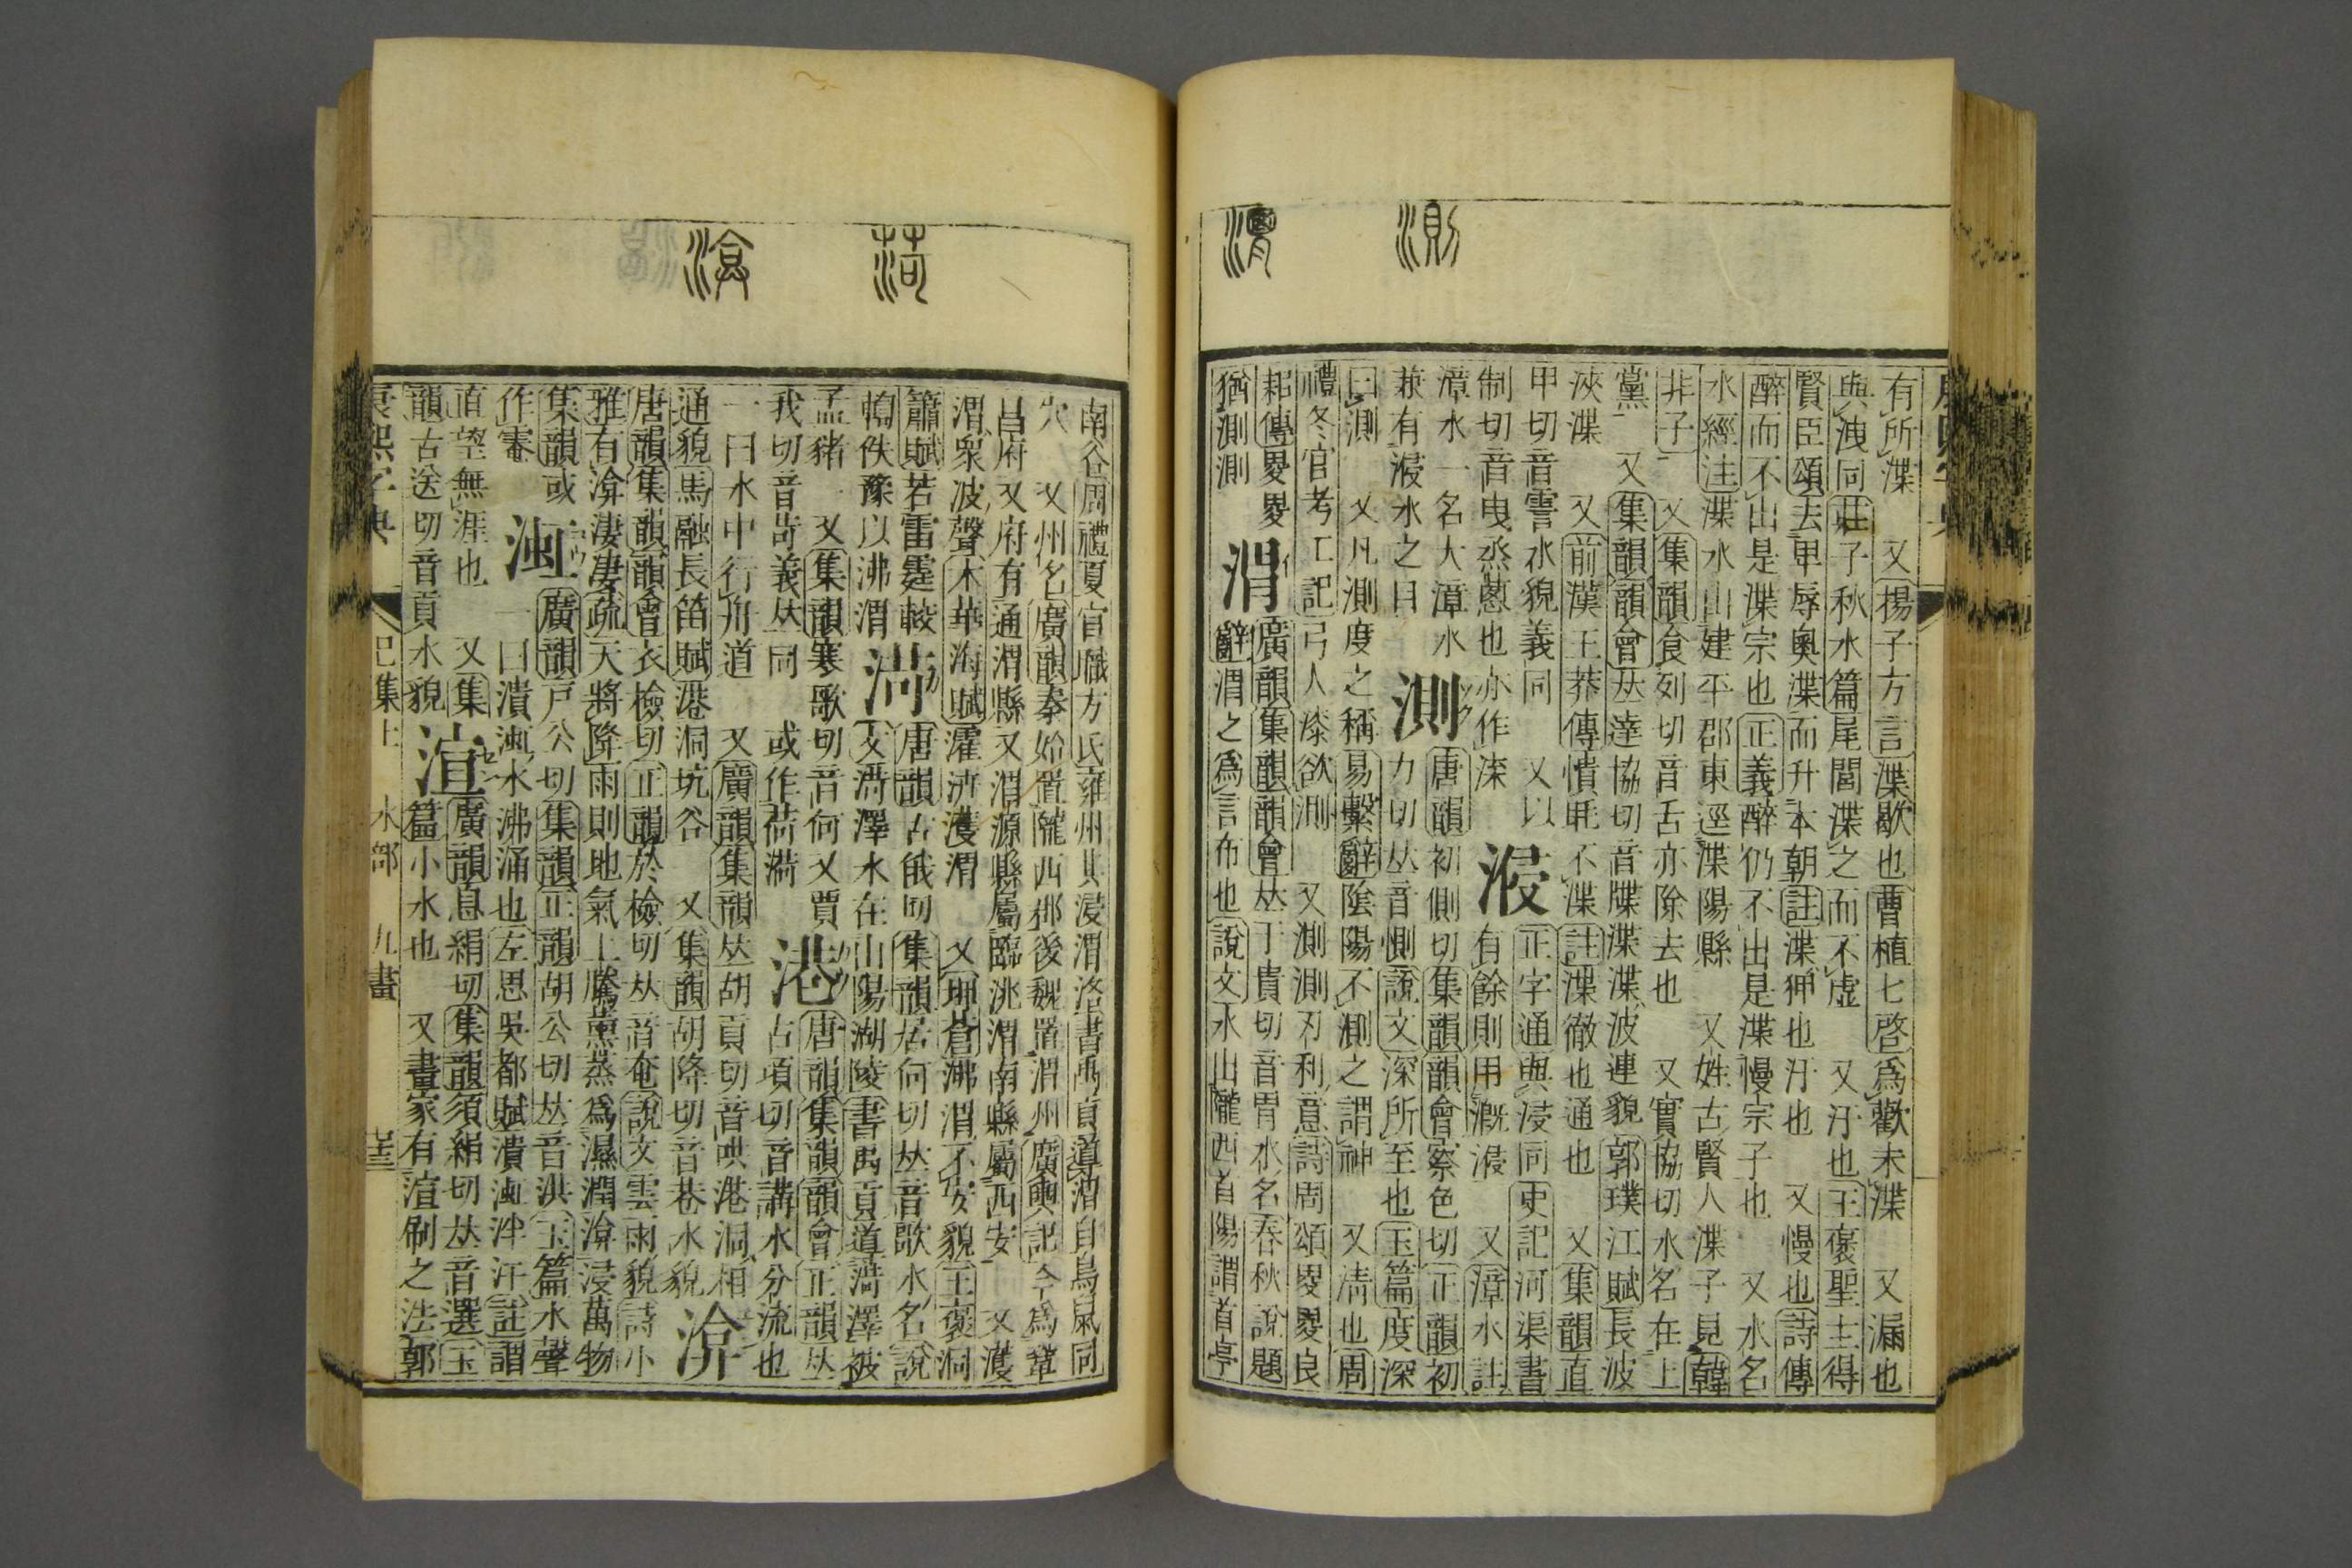 測
渭
有所渫　又揚子方言渫歇也曹植七啓爲歡未渫　又漏也
與洩同莊子秋水篇尾閭渫之而不虛　又汙也王褒聖主得
賢臣頌去卑辱奧渫而升本朝註渫狎也汙也　又慢也詩傳
醉而不出是渫宗也正義醉仍不出是渫慢宗子也　又水名
水經注渫水出建平郡東逕渫陽縣　又姓古賢人渫子見韓
非子　又集韻食列切音舌亦除去也　又實協切水名在上
黨　又集韻韻會𠀤達協切音牒渫渫波連貌郭璞江賦長波
浹渫　又前漢王莽傳憒眊不渫註渫徹也通也　又集韻直
甲切音霅水貌義同　又以
制切音曳烝蔥也亦作渿
渑
正字通與浸同史記河渠書
有餘則用溉浸　又漳水註
漳水一名大漳水
兼有浸水之目
測
唐韻初側切集韻韻會察色切正韻初
力切𠀤音惻說文深所至也玉篇度深
曰測　又凡測度之稱易繫辭陰陽不測之謂神　又淸也周
禮冬官考工記弓人漆欲測　又測測刃利意詩周頌畟畟良
耜傳畟畟
猶測測
渭
廣韻集韻韻會𠀤于貴切音胃水名春秋說題
辭渭之爲言布也說文水出隴西首陽謂首亭
康熙字典
渮
渰
南谷周禮夏官職方氏雍州其浸渭洛書禹貢導渭自鳥鼠同
穴　又州名廣韻秦始置隴西郡後魏置渭州廣輿記今爲鞏
昌府　又府有通渭縣又渭源縣屬臨洮渭南縣屬西安　又濩
渭衆波聲木華海賦灂泋濩渭　又埤蒼沸渭不安貌王褒洞
簫賦若雷霆輘
輷佚豫以沸渭
渮
唐韻古俄切集韻居何切𠀤音歌水名說
文渮澤水在山陽湖陵書禹貢導渮澤被
孟豬　又集韻寒歌切音何又賈
我切音哿義𠀤同　或作荷菏
港
唐韻集韻韻會正韻𠀤
古項切音講水分流也
一曰水中行舟道　又廣韻集韻𠀤胡貢切音哄港洞相
通貌馬融長笛賦港洞坑谷　又集韻胡降切音巷水貌
渰
唐韻集韻韻會衣檢切正韻於檢切𠀤音奄說文雲雨貌詩小
雅有渰淒淒疏天將降雨則地氣上騰薰蒸爲濕潤渰浸萬物
集韻或
作㝪
渱
廣韻戶公切集韻正韻胡公切𠀤音洪玉篇水聲
一曰潰渱水沸涌也左思吳都賦潰渱泮汗註謂
直望無涯也　又集
韻古送切音貢水貌
渲
廣韻息絹切集韻須絹切𠀤音選玉
篇小水也　又畫家有渲刷之法郭
康熙字典　巳集上　水部　九畫